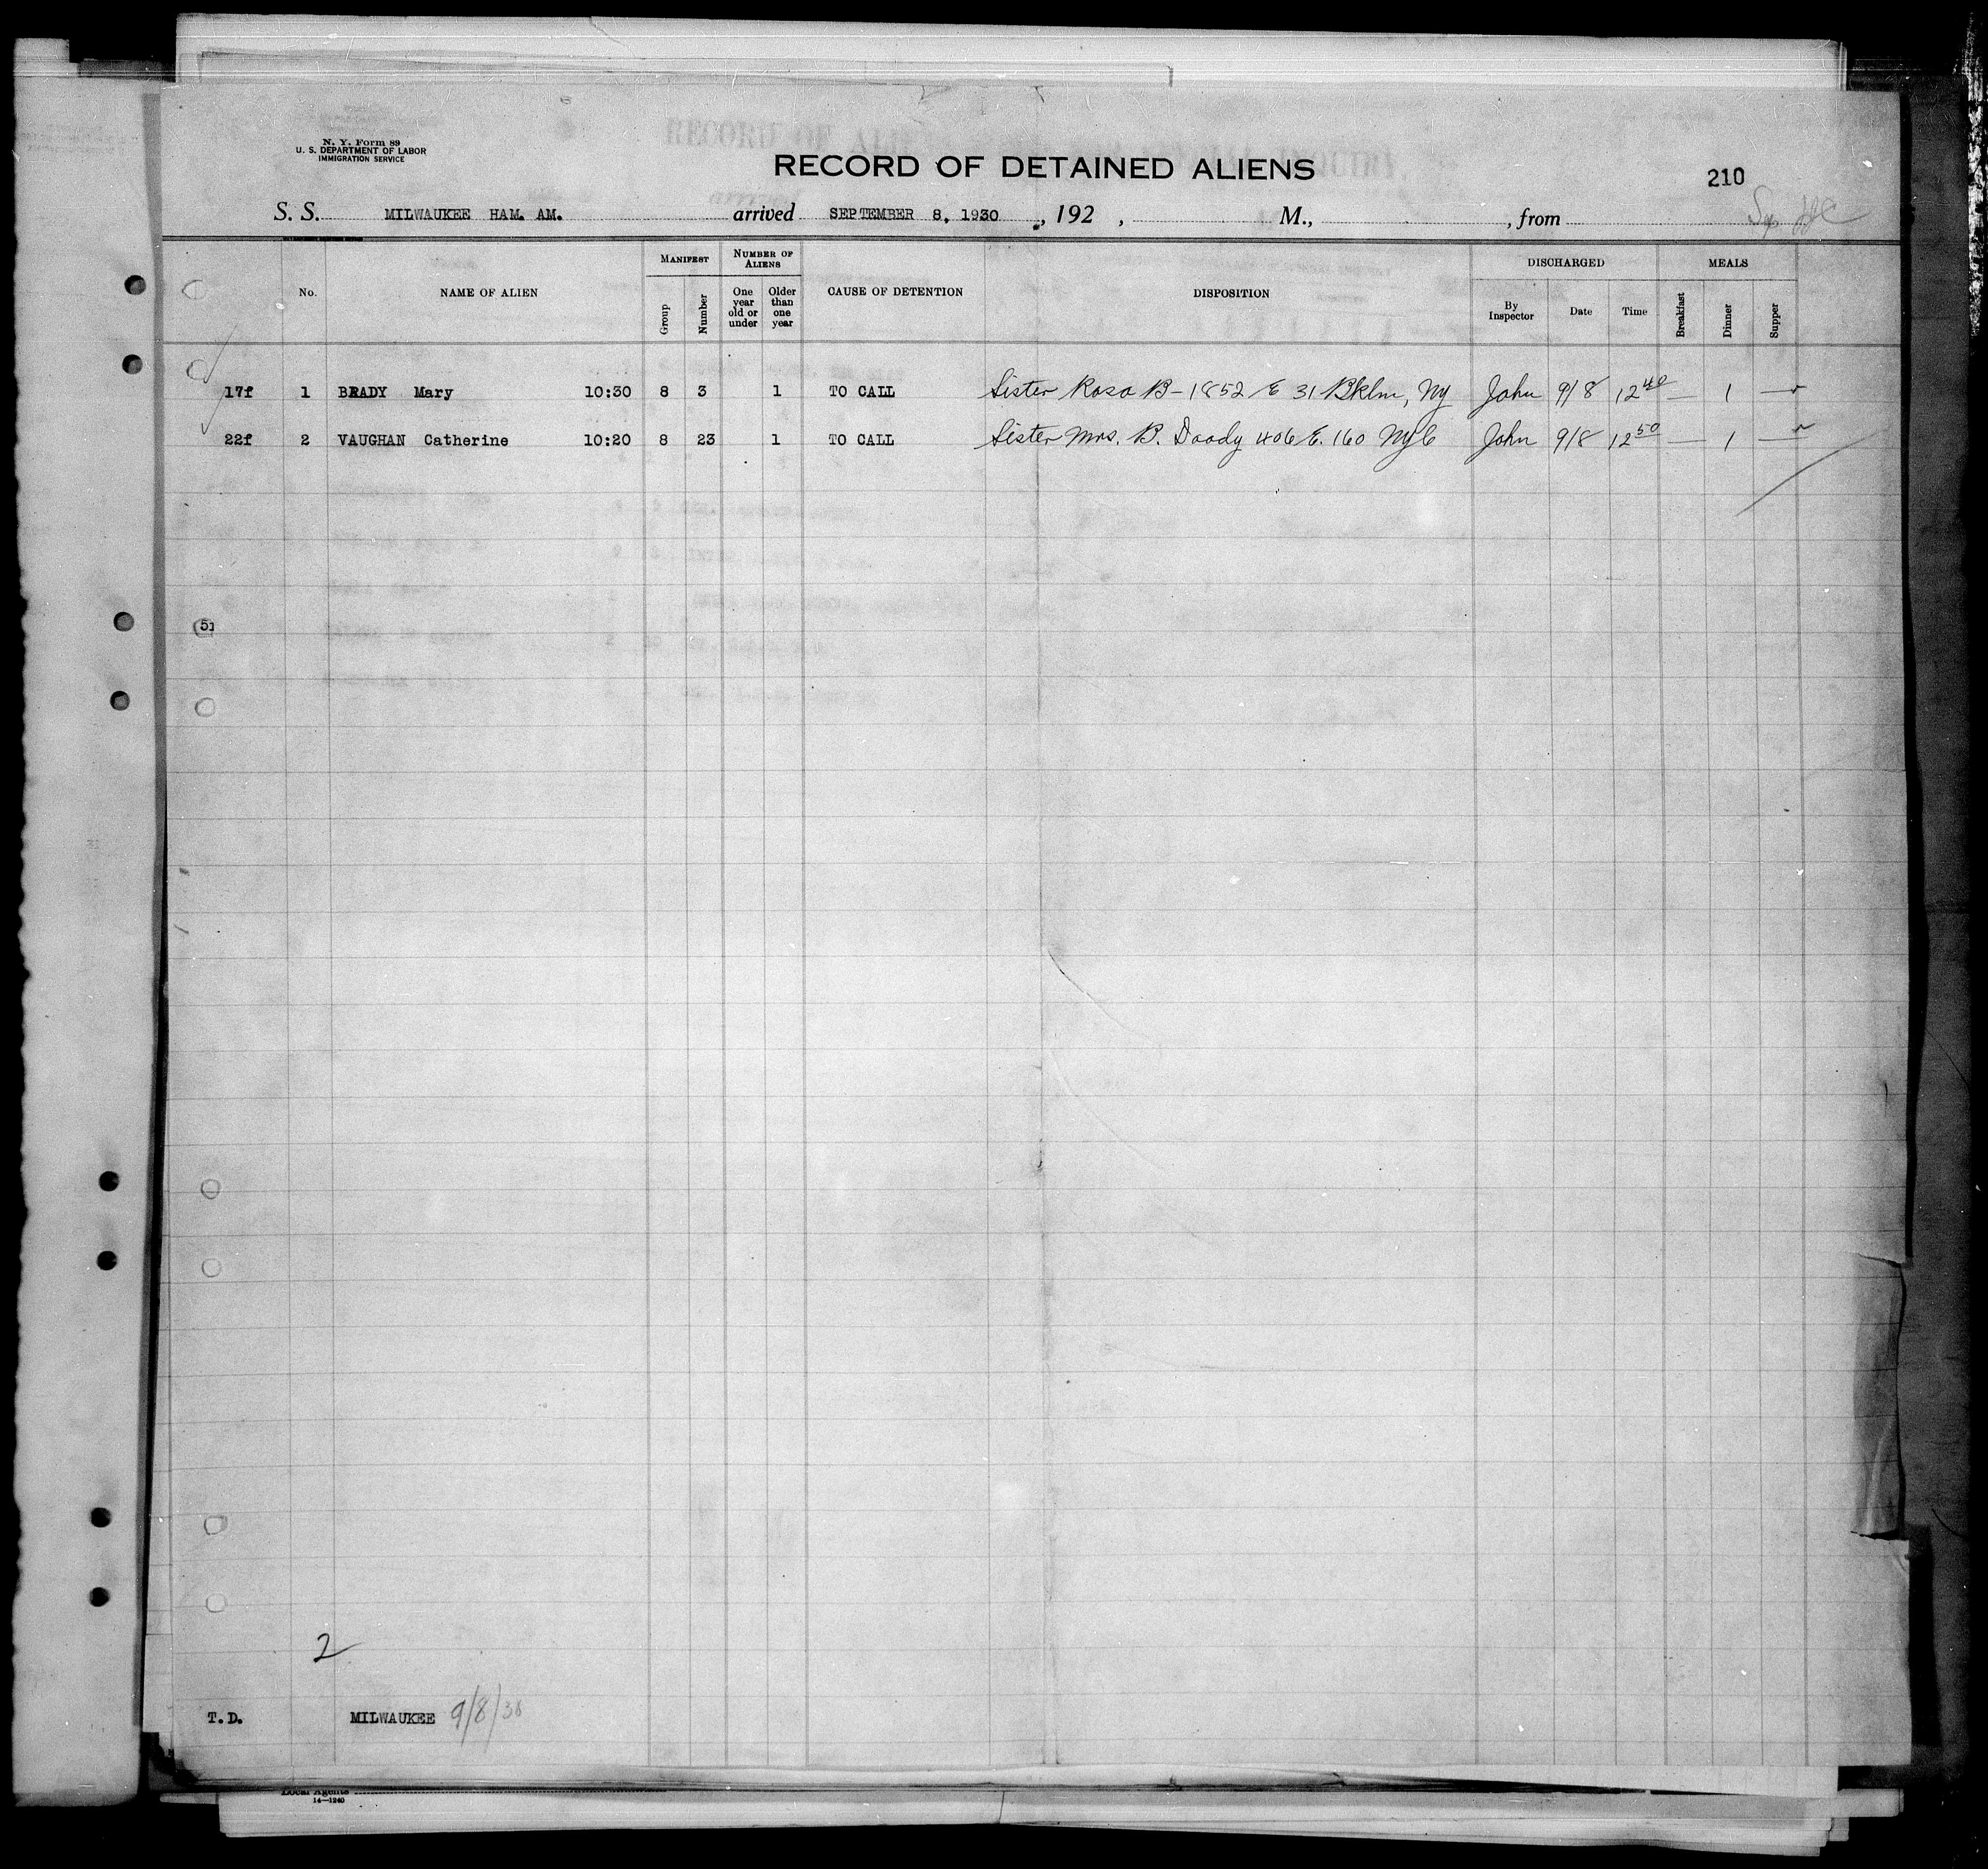 N. Y. Form 89
U. S. DEPARTMENT OF LABOR
IMMIGRATION SERVICE
RECORD OF DETAINED ALIENS
210
S. S. MILWAUKEE HAM. AM. arrived SEPTEMBER 8, 1930 , 192 , M., , from
No. NAME OF ALIEN MANIFEST Group Number NUMBER OF ALIENS One year old or under Older than one year CAUSE OF DETENTION DISPOSITION DISCHARGED By Inspector Date Time MEALS Breakfast Dinner Supper
17f 1 BRADY Mary 10:30 8 3 1 TO CALL Sister Rosa B- 1852 E 31 Bklm, Ny John 9/8 12 40 — 1 —
22f 2 VAUGHAN Catherine 10:20 8 23 1 TO CALL Sister Mrs. B. Doody 406 E. 160 NyC John 9/8 12 50 — 1 —
5
2
T.D. MILWAUKEE 9/8/30
Local Agents
14—1240